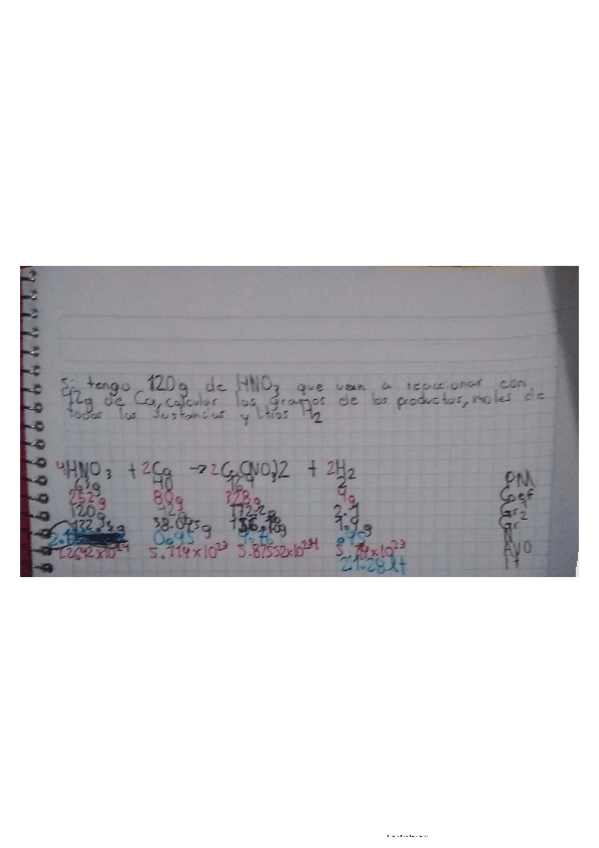 Si tengo 120g de HNO3 que van a reaccionar con
42g de Ca, calcular los gramos de los productos, moles de
todas las sustancias y litros H2
4HNO3 + 2Ca → 2Ca(NO3)2 + 2H2
63g 40 164 2 PM
252g 80g 328g 4g Coef
120g 42g 172.2g 2.1 Gr2
38.095g 1.9g Gr
0.95 .95 N
5.719x10²³ AVO
21.28lt lt